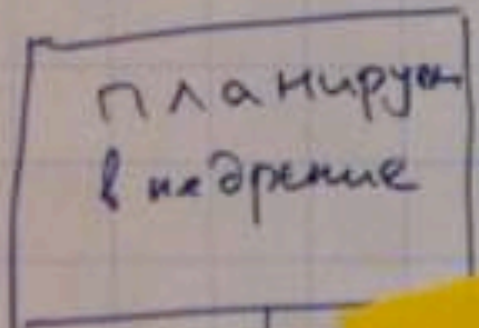 планируем
внедрение